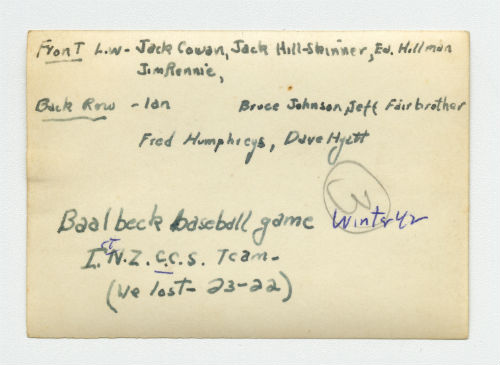 Front L.W- Jack Cowan, Jack Hill-Skinner, Ed. Hillman
Jim Rennie,
Back Row - Ian Bruce Johnson, Jeff Fairbrother
Fred Humphreys, Dave Hyatt
3
Baalbeck baseball game Winter 42
1st N.Z. C.C.S. Team-
(We lost- 23-22)